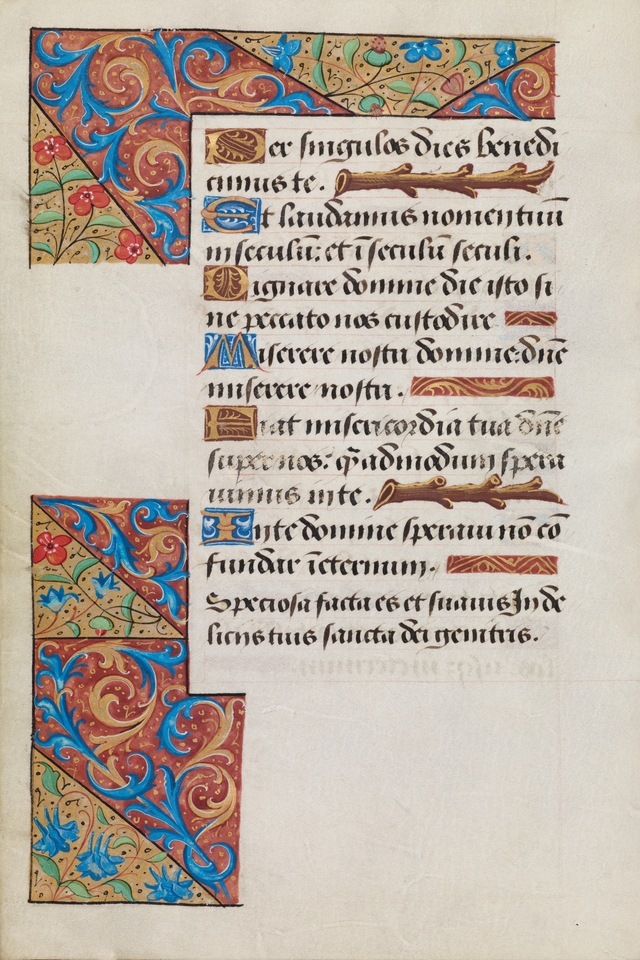 Per singulos dies benedi
cimus te.
Et laudamus nomen tuū
in seculū: et ī seculū seculi.
Dignare domine die isto si
ne peccato nos custodire
Miserere nostri domine: dñe
miserere nostri.
Fiat misericordia tua dñe
super nos: q̄ admodum spera
uimus in te.
In te domine speraui nō cō
fundar ī eternum.
Speciosa facta es et suauis In de
licijs tuis sancta dei genitris.